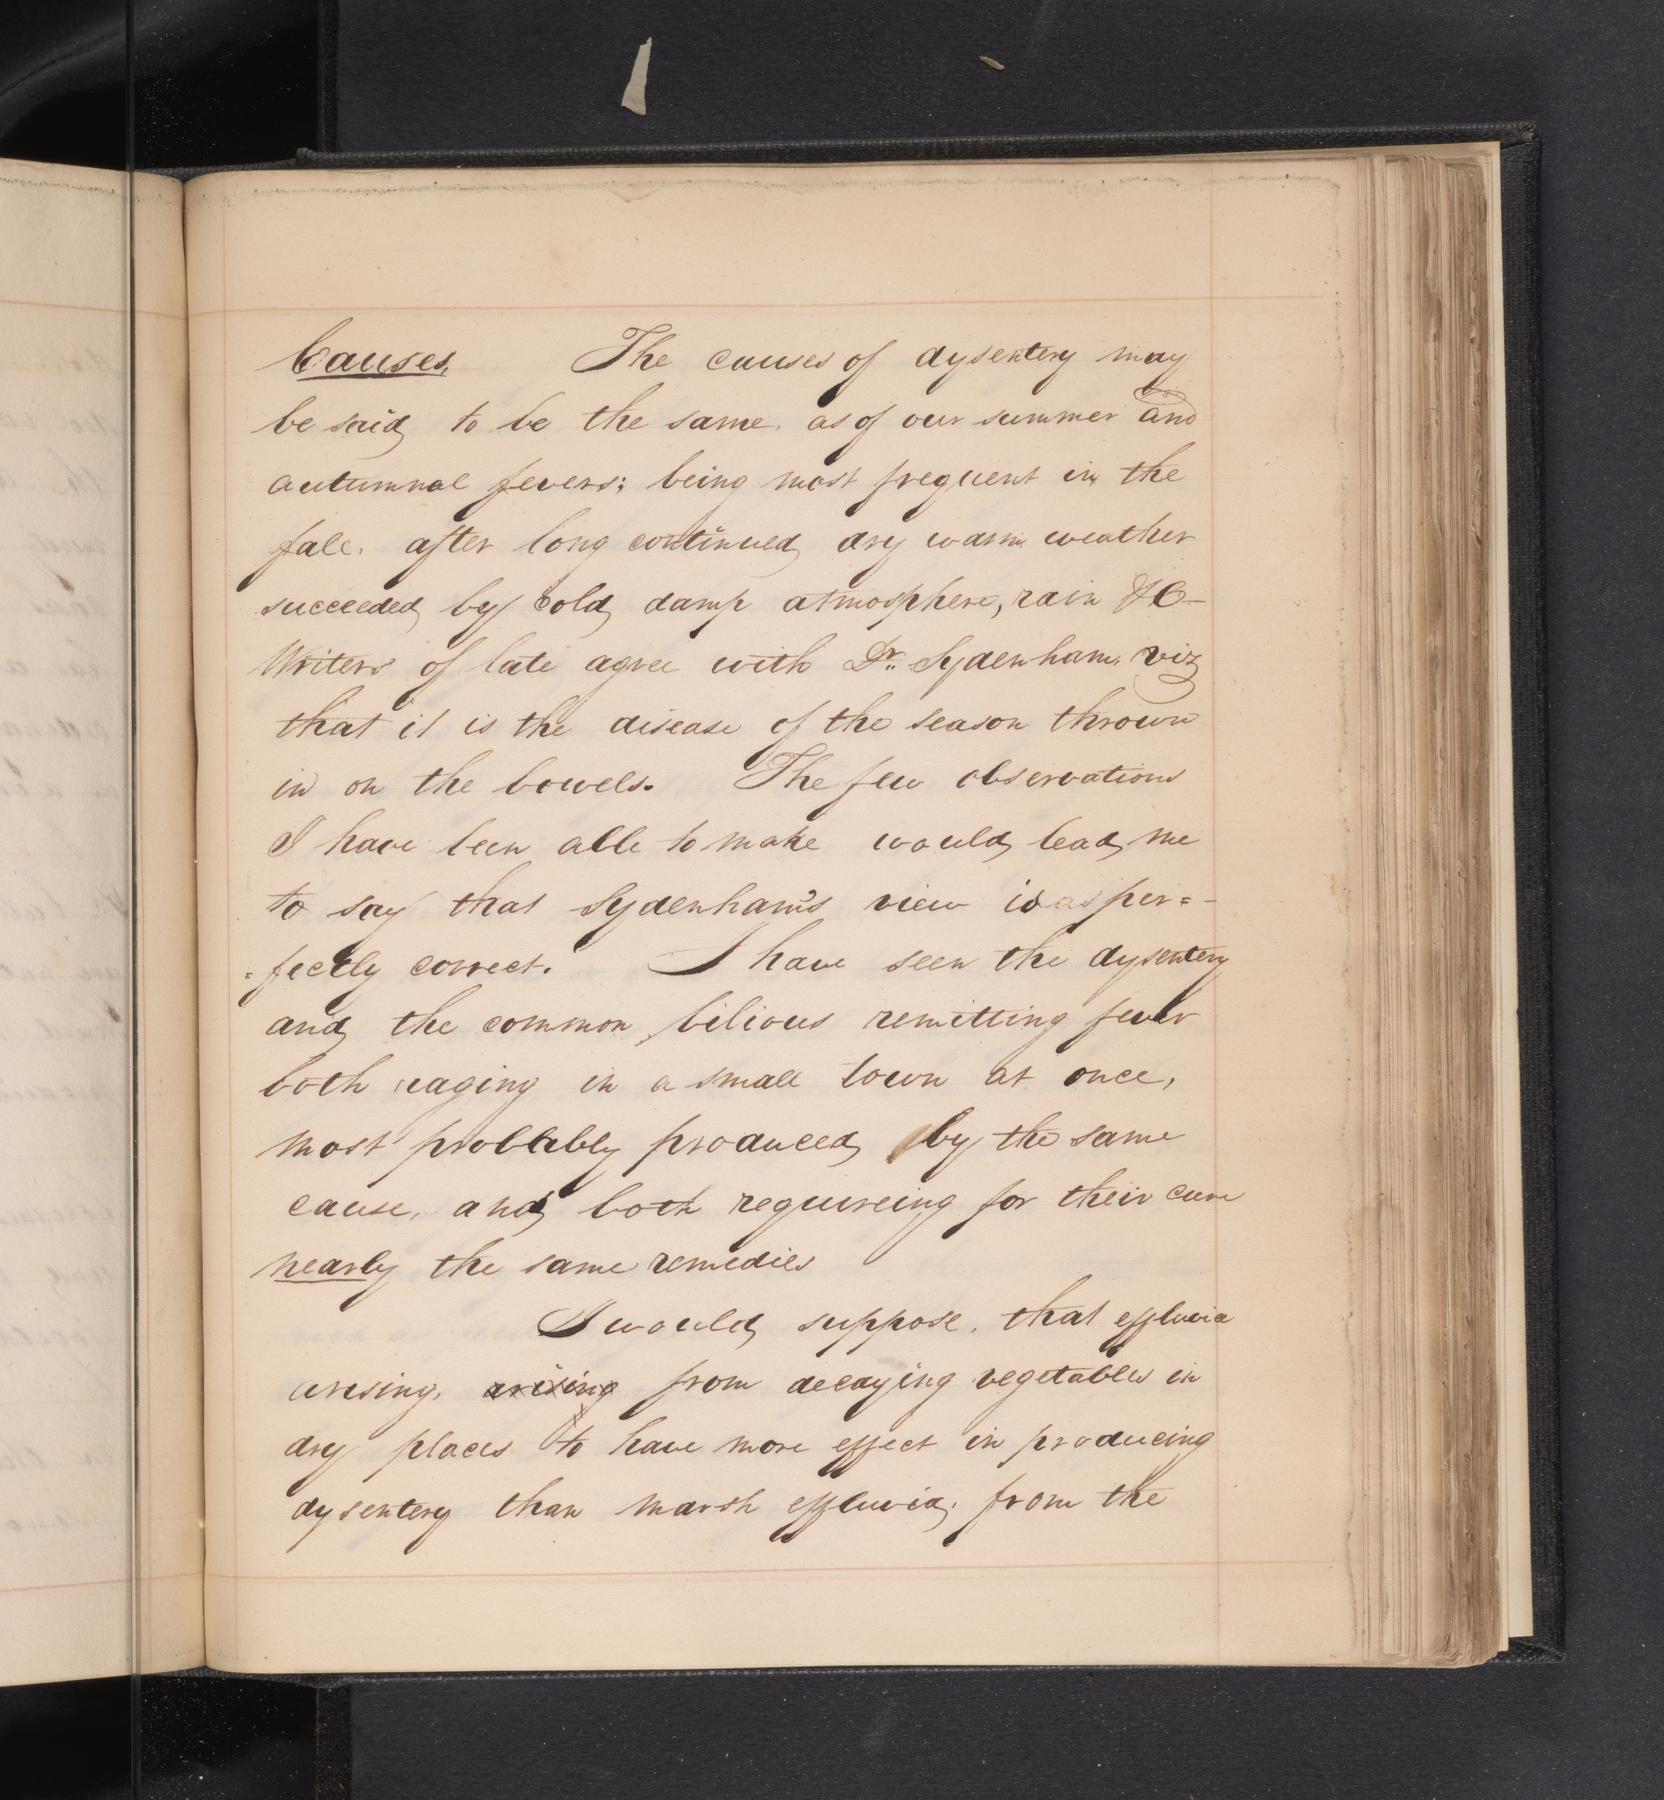 Causes. The causes of dysentery may
be said to be the same, as of our summer and
autumnal fevers; being most frequent in the
fall, after long continued dry warm weather
succeeded by cold damp atmosphere, rain &C
Writers of late agree with Dr. Sydenham, viz
that it is the disease of the season thrown
in on the bowels. The few observations
I have been able to make would lead me
to say that Sydenham's view is as per=
=fectly correct. I have seen the dysentery
and the common bilious remitting fever
both raging in a small town at once,
most probbably produced by the same
cause, and both requireing for their cure
nearly the same remedies
I would suppose, that effluvia
arising, arising from decaying vegetables in
dry places to have more effect in producing
dysentery than marsh effluvia, from the